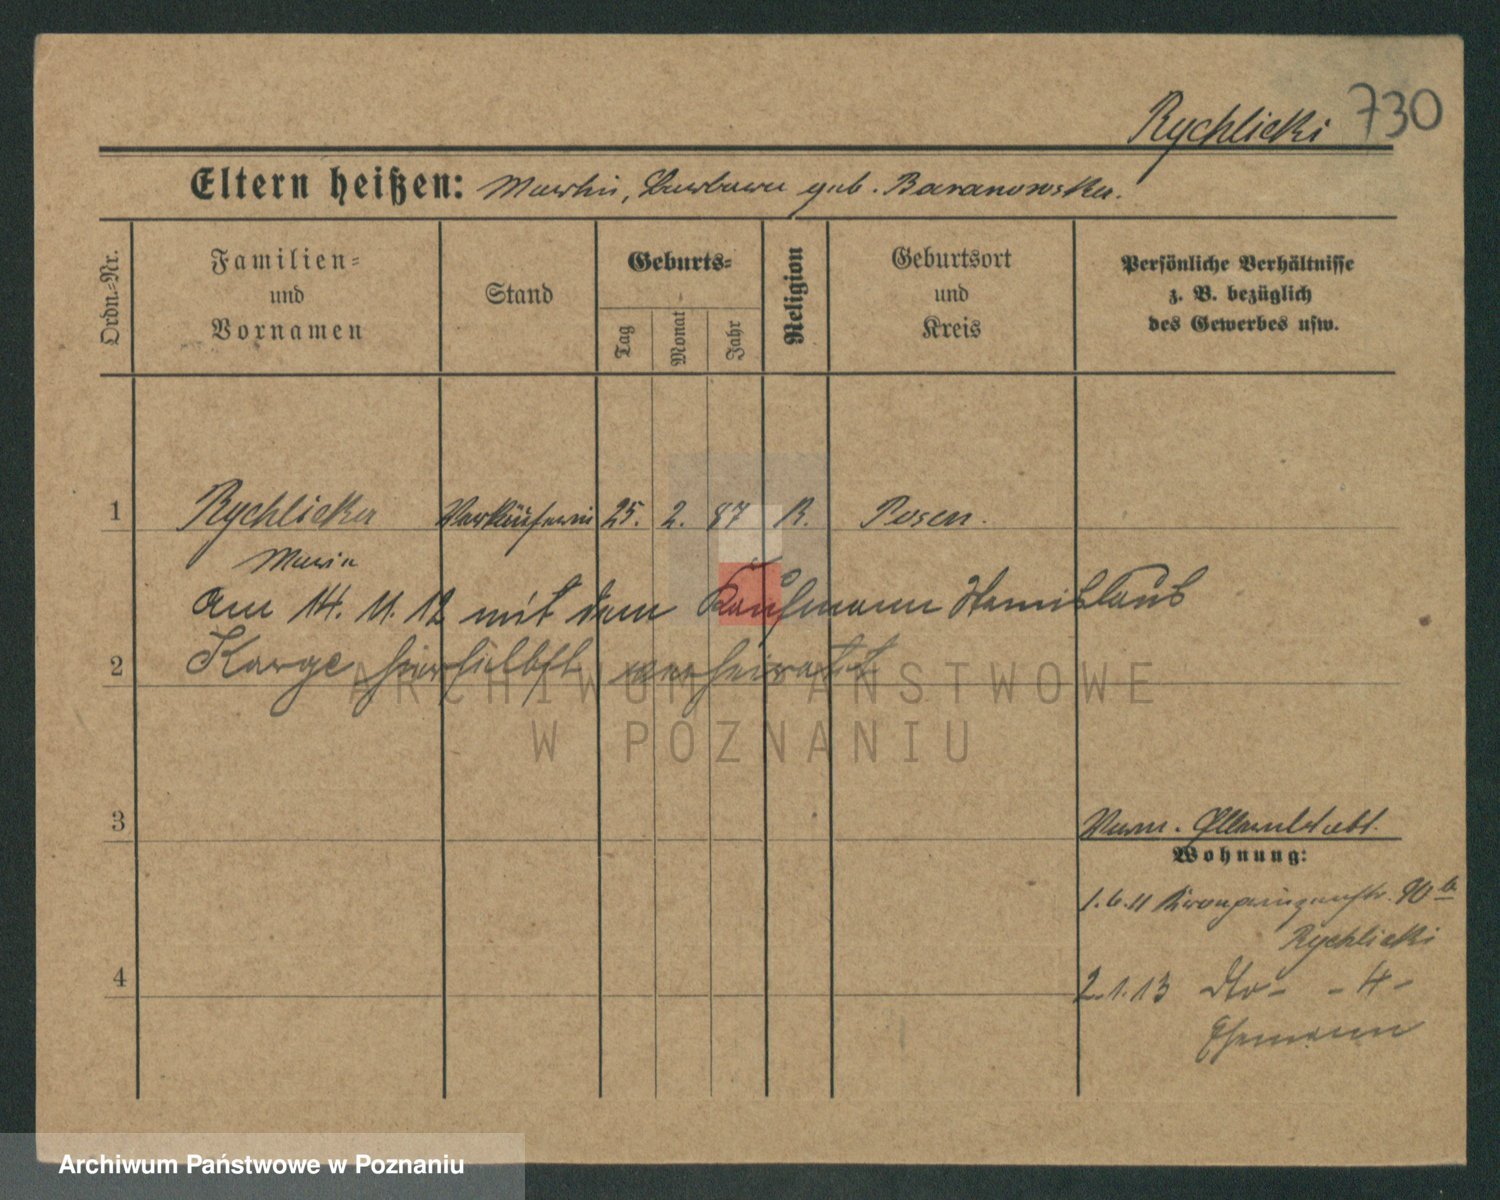 Rychlicki 730
Eltern heißen: Martin, Barbara geb. Baranowska.
Ordn.-Nr.
Familien- und Vornamen
Stand
Geburts-
Tag
Monat
Jahr
Religion
Geburtsort und Kreis
Persönliche Verhältnisse
z. B. bezüglich
des Gewerbes usw.
1 Rychlicka Verkäuferin 25. 2. 87 K. Posen.
Maria
am 14. 11. 12 mit dem Kaufmann Stanislaus
2 Karge hierselbst verheiratet
ARCHIWUM PAŃSTWOWE
W POZNANIU
3
Wohnung:
1.6.11 Kronprinzenstr. 90 b
Rychlicki
4
2.1.13 dto - - 4 -
Ehemann
Archiwum Państwowe w Poznaniu